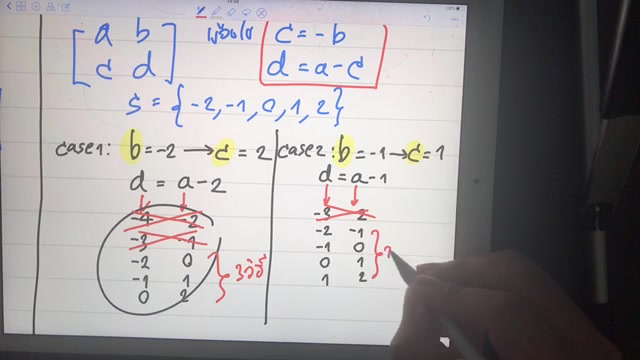 a b
c d
c = -b
d = a - c
S = {-2, -1, 0, 1, 2}
case1: b = -2 → c = 2
d = a - 2
-4 -2
-3 -1
-2 0
-1 1
0 2
3วิธี
case2: b = -1 → c = 1
d = a - 1
-3 2
-2 -1
-1 0
0 1
1 2